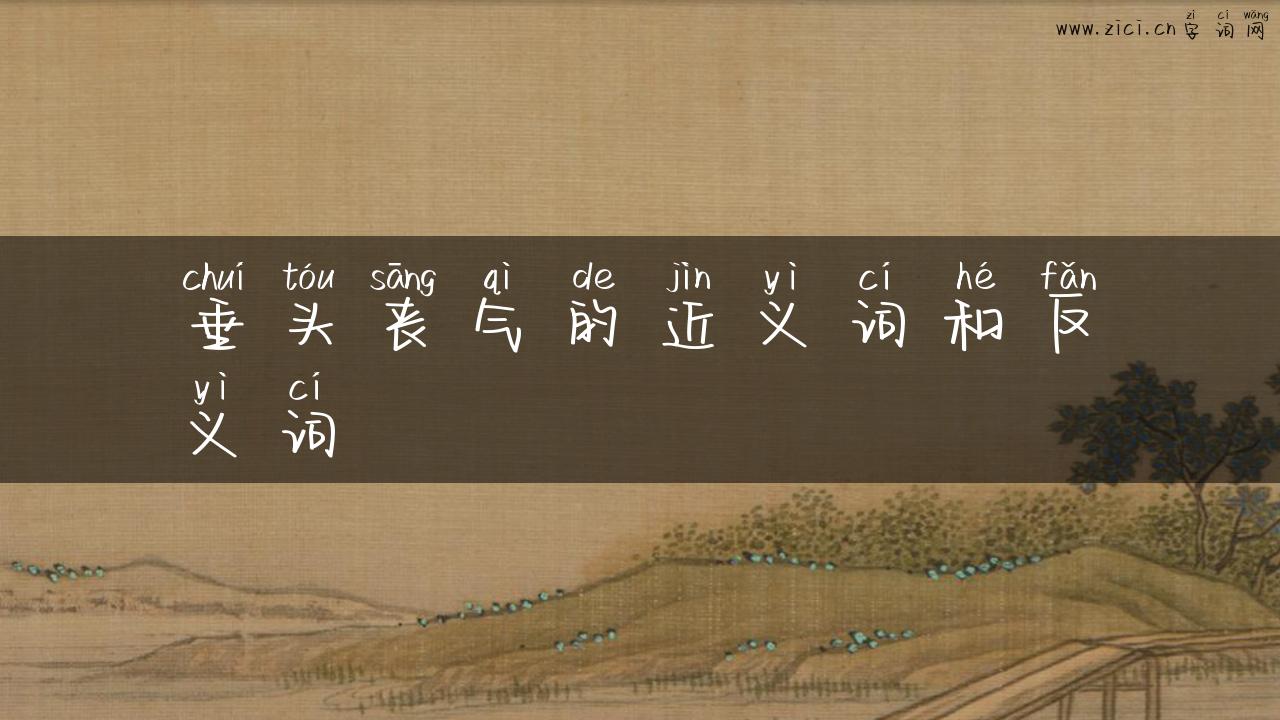 zì cí wǎng
www.zici.cn 字词网
chuí tóu sāng qì de jìn yì cí hé fǎn
垂头丧气的近义词和反
yì cí
义词